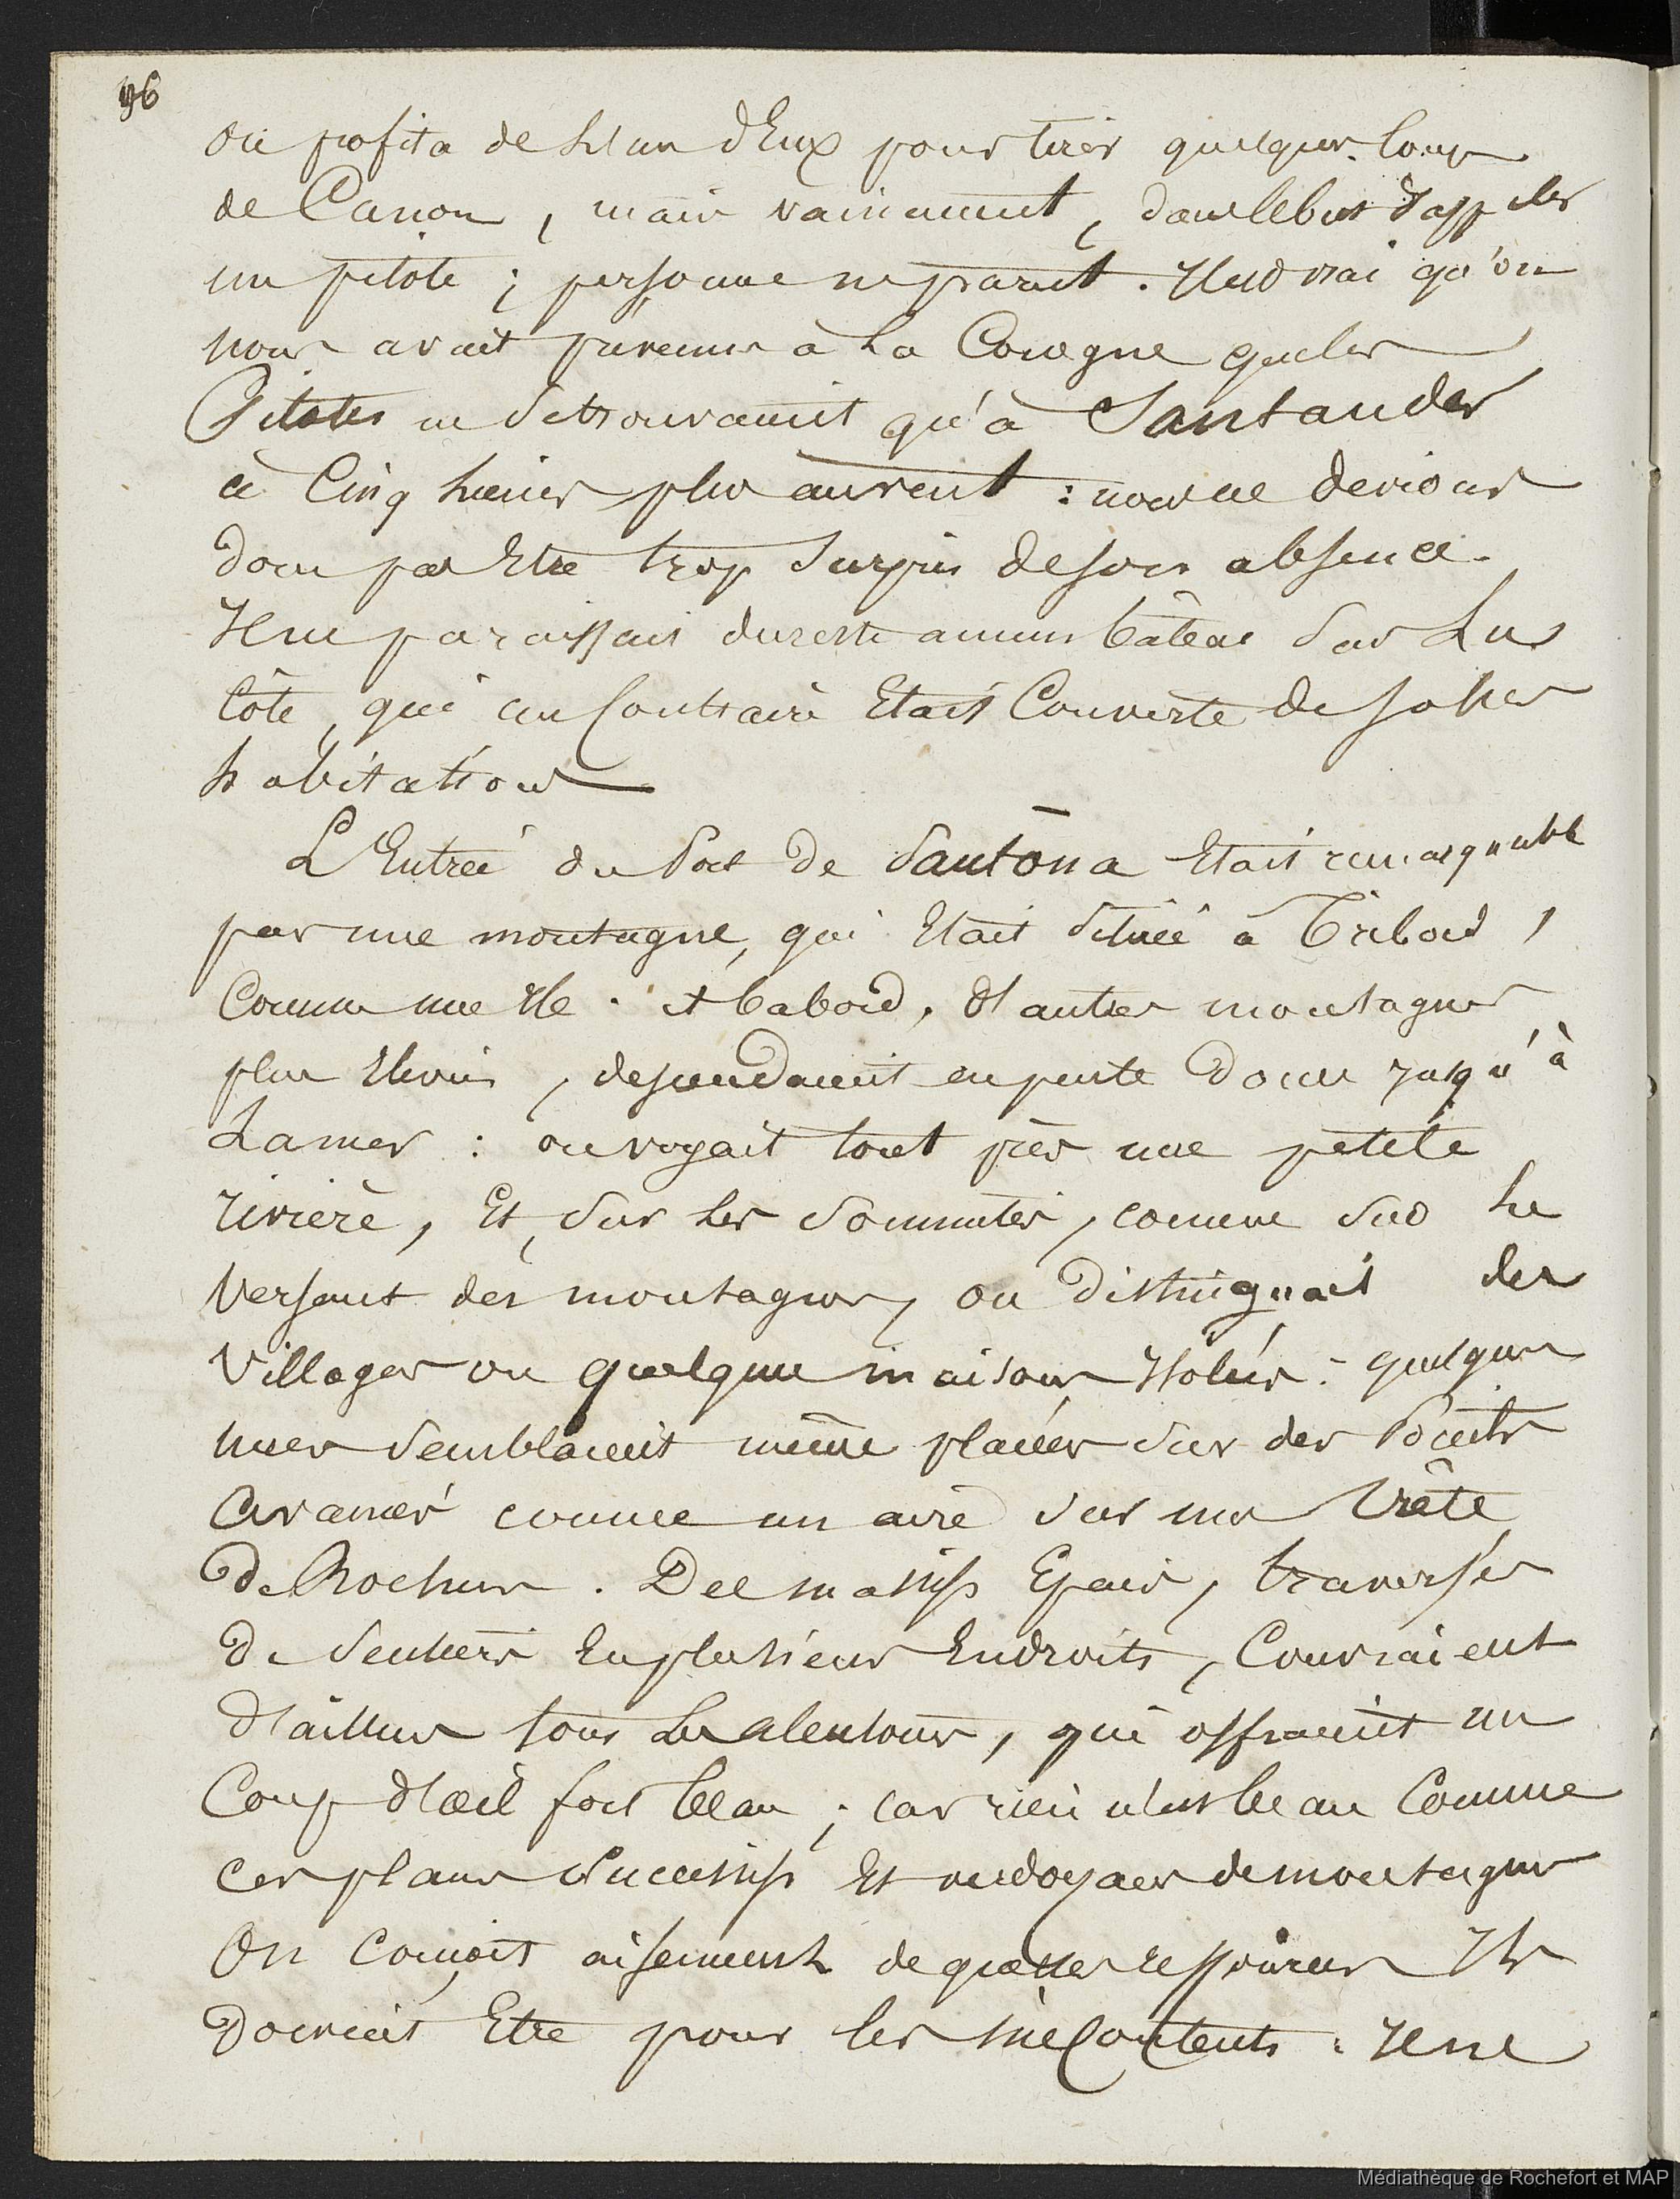 96
on profita de l'un d'Eux pour tirer quelques Coups
de Canon, mais vainement, dans le but d'appeler
un pilote ; personne ne parut. Il est vrai qu'on
nous avait prévenus à La Corogne que les
Pilotes ne se trouvaient qu'à Santander
à Cinq lieues plus avent : nous ne devions
donc pas Etre trop Surpris de son absence.
Il ne paraissait du reste aucun bâteau Sur La
Côte, qui au Contraire Etait Couverte de Jolies
habitations
L'Entrée du Port de Santona Etait remarquable
par une montagne, qui Etait Située à Tribord,
Comme une Ile. et babord, d'autres montagnes
plus Elevées, descendaient en pente douce jusqu'à
La mer : on voyait tout près une petite
rivière, Et, Sur les Sommités, comme Sur le
Versant des montagnes, on Distinguait des
Villages ou quelques maisons Isolées : quelques
unes Semblaient même placées Sur des Points
Avancés comme un aire Sur une Crête
De Rochers. Des massifs Epais, traversés
De Sentiers En plusieurs Endroits, Couvraient
D'ailleurs tous Les alentours, qui offraient un
Coup d'œil fort beau ; car rien n'est beau Comme
Ces plans Successifs Et ondoyans de montagnes
On Conçoit aisement de quelles ressources Ils
Doivent Etre pour les méContents. Il ne
Médiathèque de Rochefort et MAP